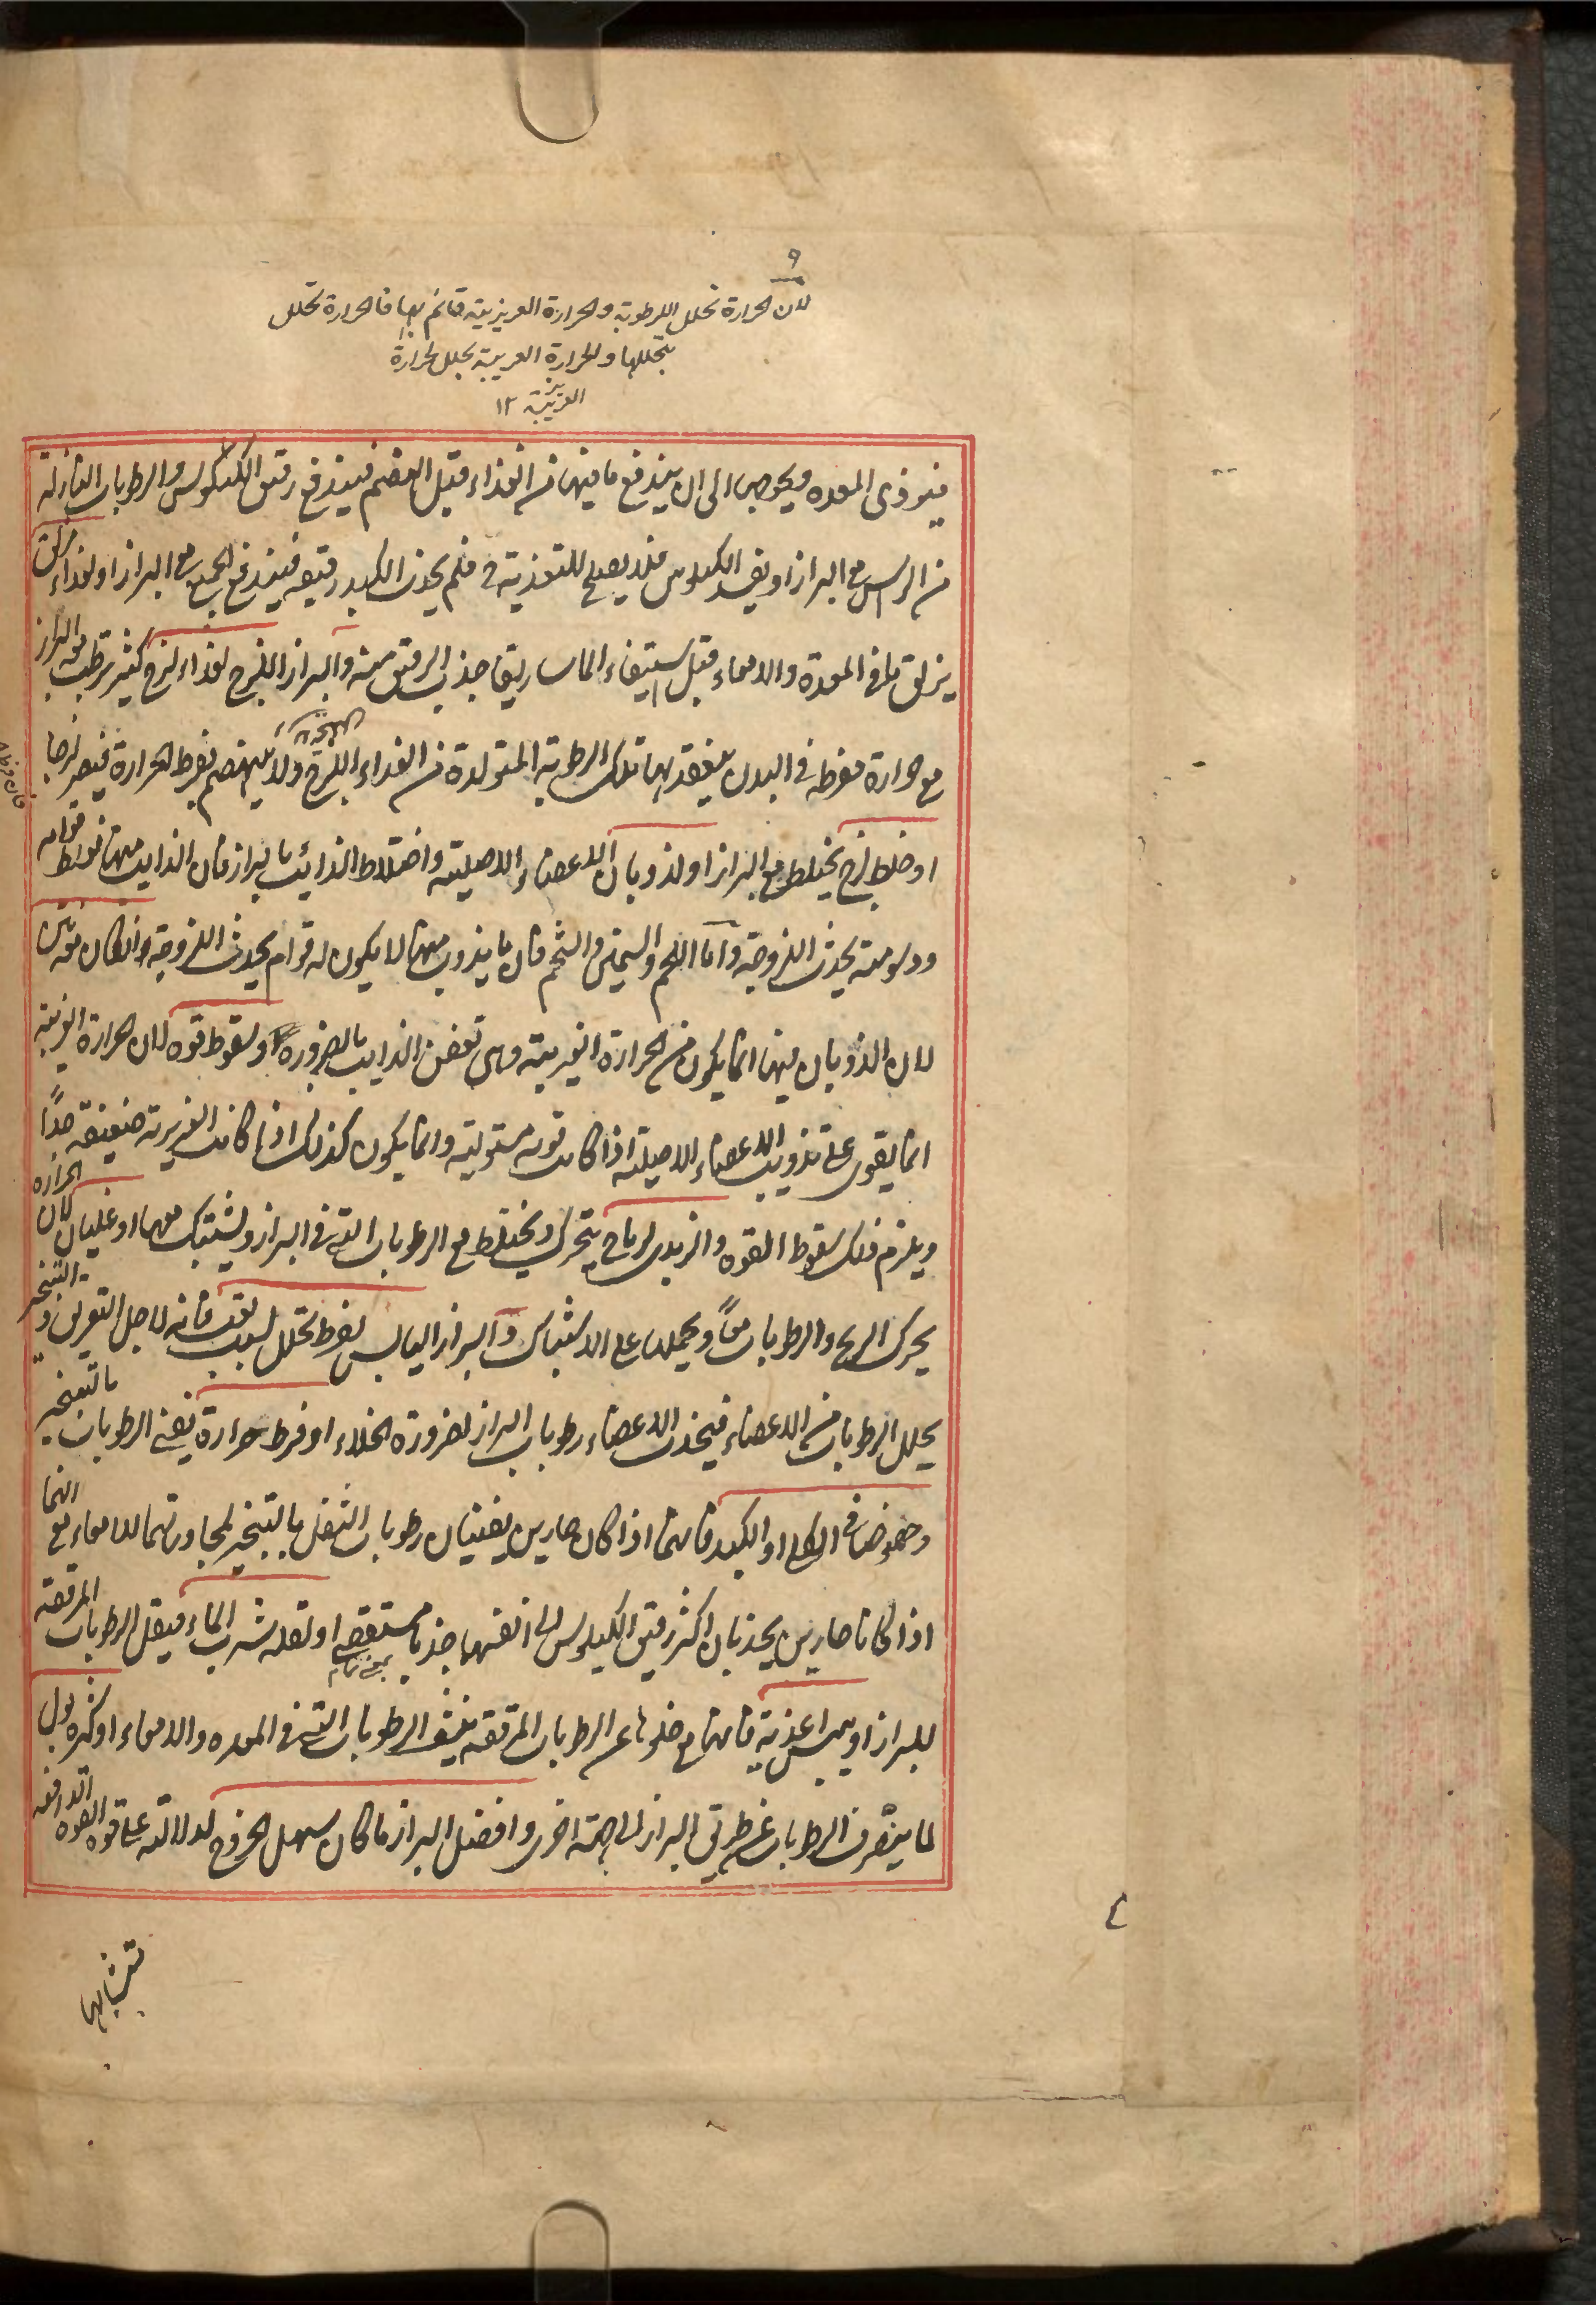 ٩
لان الحرارة تحلل الرطوبة والحرارة الغريزية قائم بها فالحرارة تحلل
بتحللها والحرارة الغريبة يحلل الحرارة
الغريزية ١٢
فيوذى المعده ويحوجها الى ان يندفع ما فيها من الغذاء قبل الهضم فيندفع رقيق الكيلوس والرطوبات النازلة
من الراس مع البراز او يفسد الكيلوس فلا يصلح للتغذية فلم يجذب الكبد رقيقه فيندفع الجميع مع البراز او لغذاء مزلق
يزلق ما فى المعدة والامعاء قبل استيفاء الماساريقا جذب الرقيق منه والبراز اللزج لغذاء لزج كثير ترطب به البراز
مع حرارة مفرطه فى البدن ينعقد بها تلك الرطوبة المتولدة من الغذاء اللزج ولا ينهضم بفرط الحرارة فيصير لزجا
او خلط لزج يختلط مع البراز او لذوبان الاعضاء الاصلية واختلاط الذائب بالبراز فان الذايب منها لغلظ قوامه
ودسومته يحدث اللزوجة واما اللحم والسمين والشحم فان ما يذوب منها لا يكون له قوام يحدث اللزوجة وان كان مع نتن
لان الذوبان فيها انما يكون من الحرارة الغريبة وهى تعفن الذايب بالضرورة ولسقوط قوه لان الحرارة الغريبة
انما يقوى على تذويب الاعضاء الاصلية اذا كانت قويه مستولية وانما يكون كذلك اذا كانت الغريزية ضعيفة جدًا
ويلزم ذلك سقوط القوه والزبدى لرياح يتحرك ويختلط مع الرطوبات التى فى البراز ويشتبك معها او غليان لان الحراره
يحرك الريح والرطوبات معًا ويحملها على الاشتباك والبراز اليابس لفرط تحلل بسبب تعب فانه لاجل التعريق والتبخير
يحلل الرطوبات من الاعضاء فيجذب الاعضاء رطوبات البراز لضرورة الخلاء او فرط حرارة يفنى الرطوبات بالتبخير
وخصوصا فى الكلى او الكبد فانهما اذا كان حارين يفنيان رطوبات الثفل بالتبخير لمجاورتهما للامعاء مع انهما
اذا كانا حارين يجذبان اكثر رقيق الكيلوس الى انفسهما جذبا مستقصى او لقلة شرب الماء فيقل الرطوبات المرققة
بمعنى تام
للبراز او يبس اغذية فانها مع خلوها عن الرطوبات المرققه ينشف الرطوبات التى فى المعده والامعاء او كثرة بول
لما ينصرف الرطوبات عن طريق البراز الى جهة اخرى وافضل البراز ما كان سهل الخروج لدلالته على قوه القوه الدافعه
تشابها